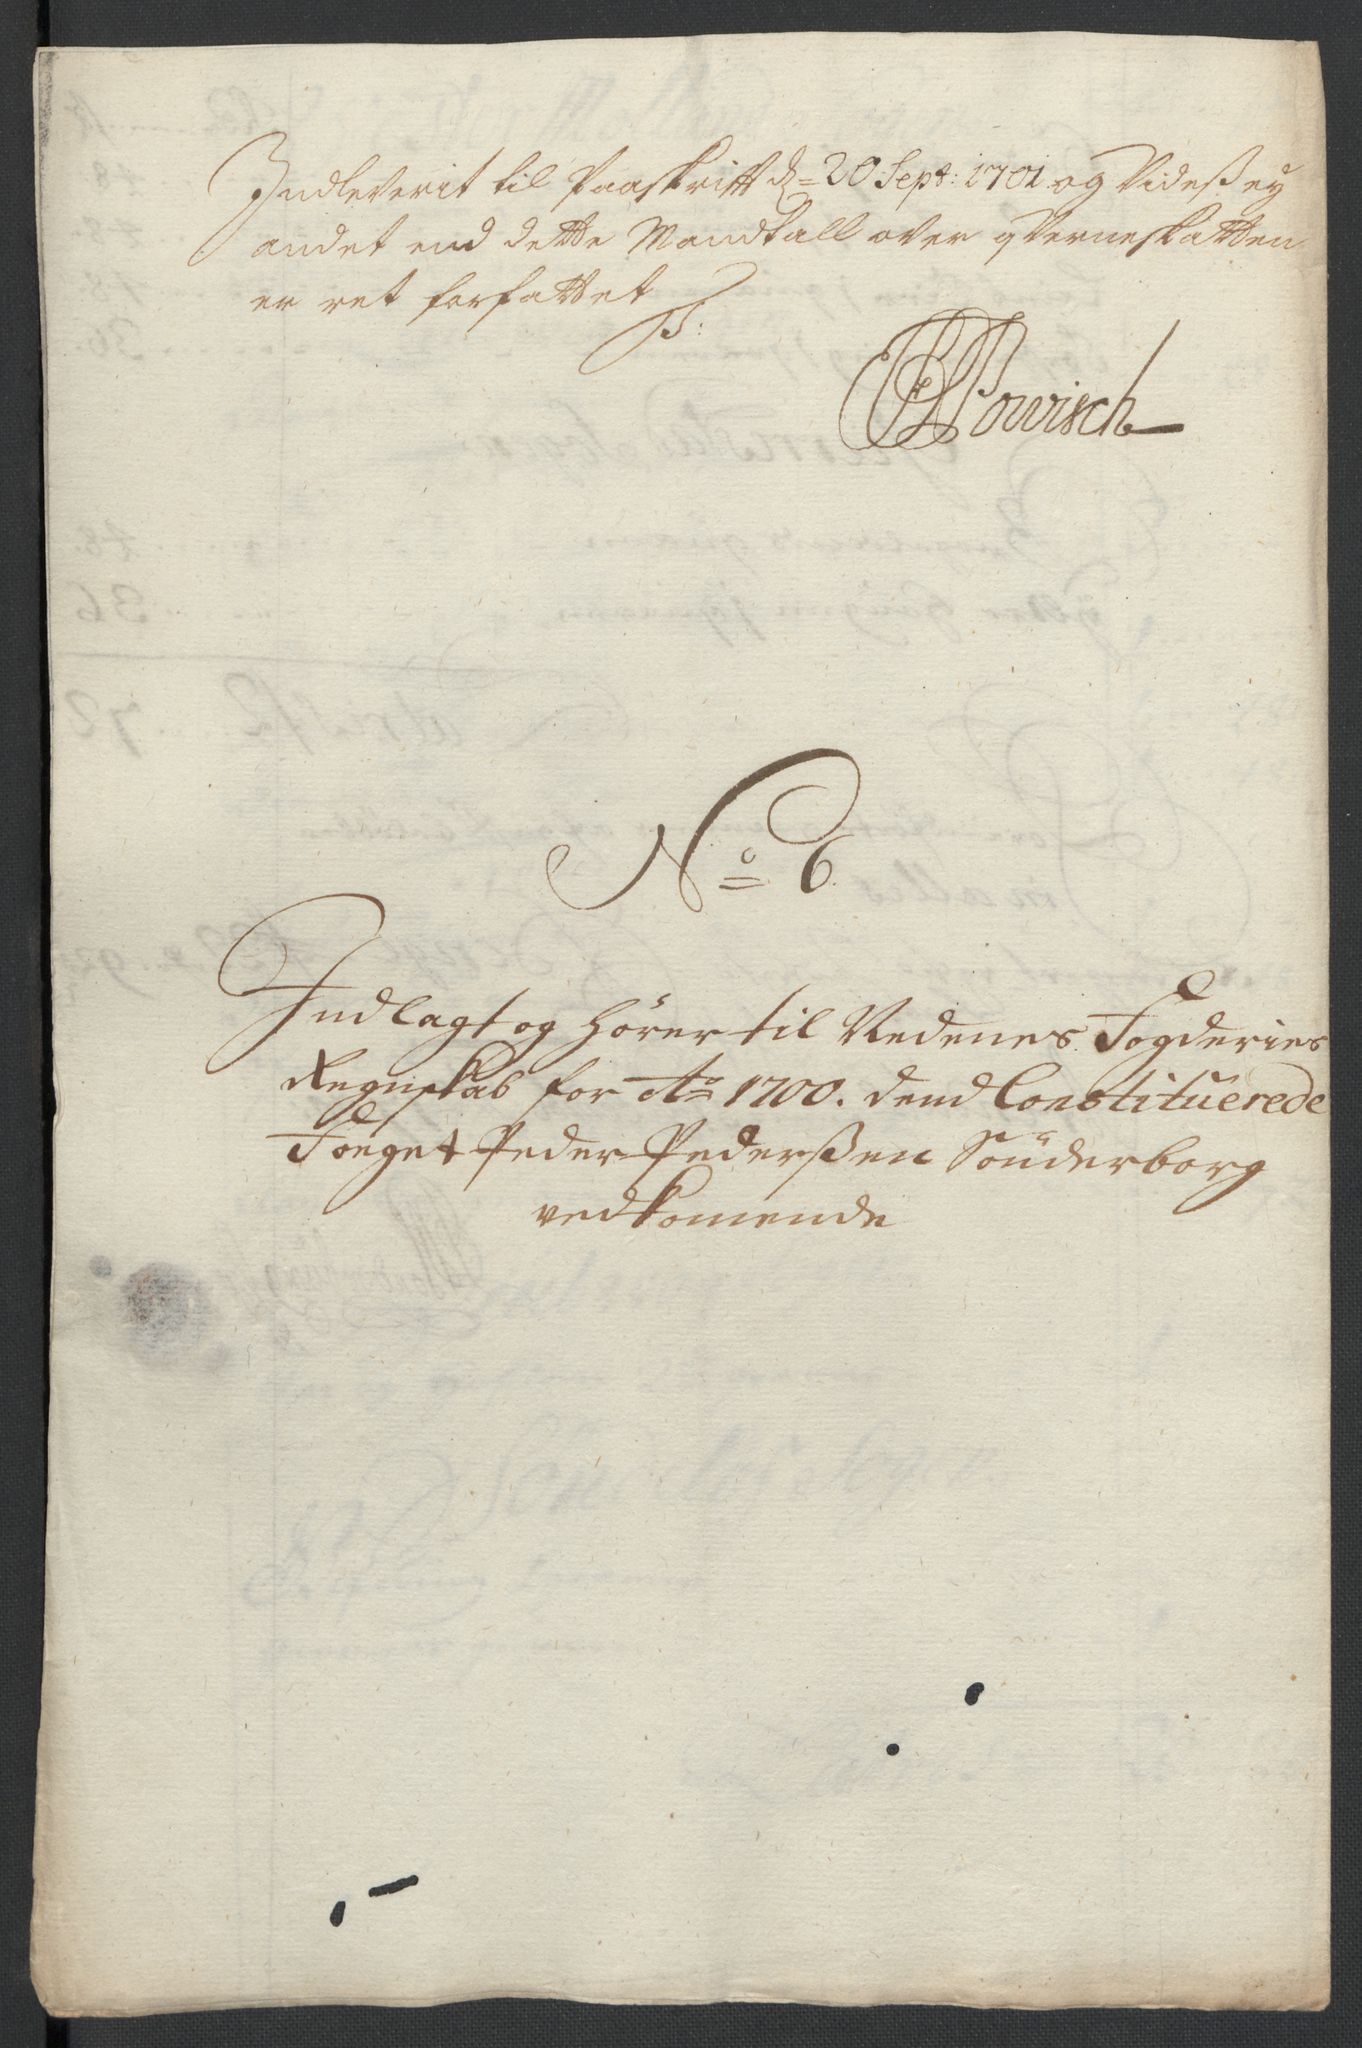 Indleverit til Paaskrifft d= 20 Sept: 1701 og Videß ey
andet end dette Mandtall over qverneskatten
er ret forfattet
Powisch
No 6
Indlagt og hörer til Nedenes Fogderies
Regnskab for Ao 1700. dend Constituerede
Foeget Peder Pederßen Sönderborg
vedkomende